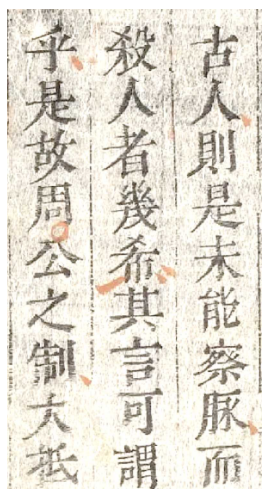 古人則是未能察脉而
殺人者幾希其言可謂
乎是故周公之制大抵